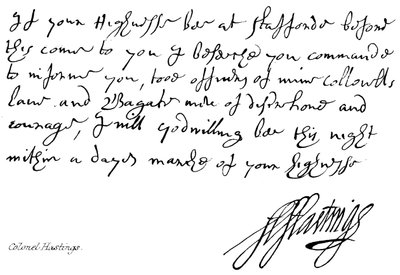 If your Highnesse bee at Stafforde before
this come to you I beseeche you commande
to informe you, tooe officers of mine collonells
Lane and Bagate mene of discretione and
courage, I will godwilling bee this night
within a dayes marche of your highnesse
Hastings
Colonel Hastings.